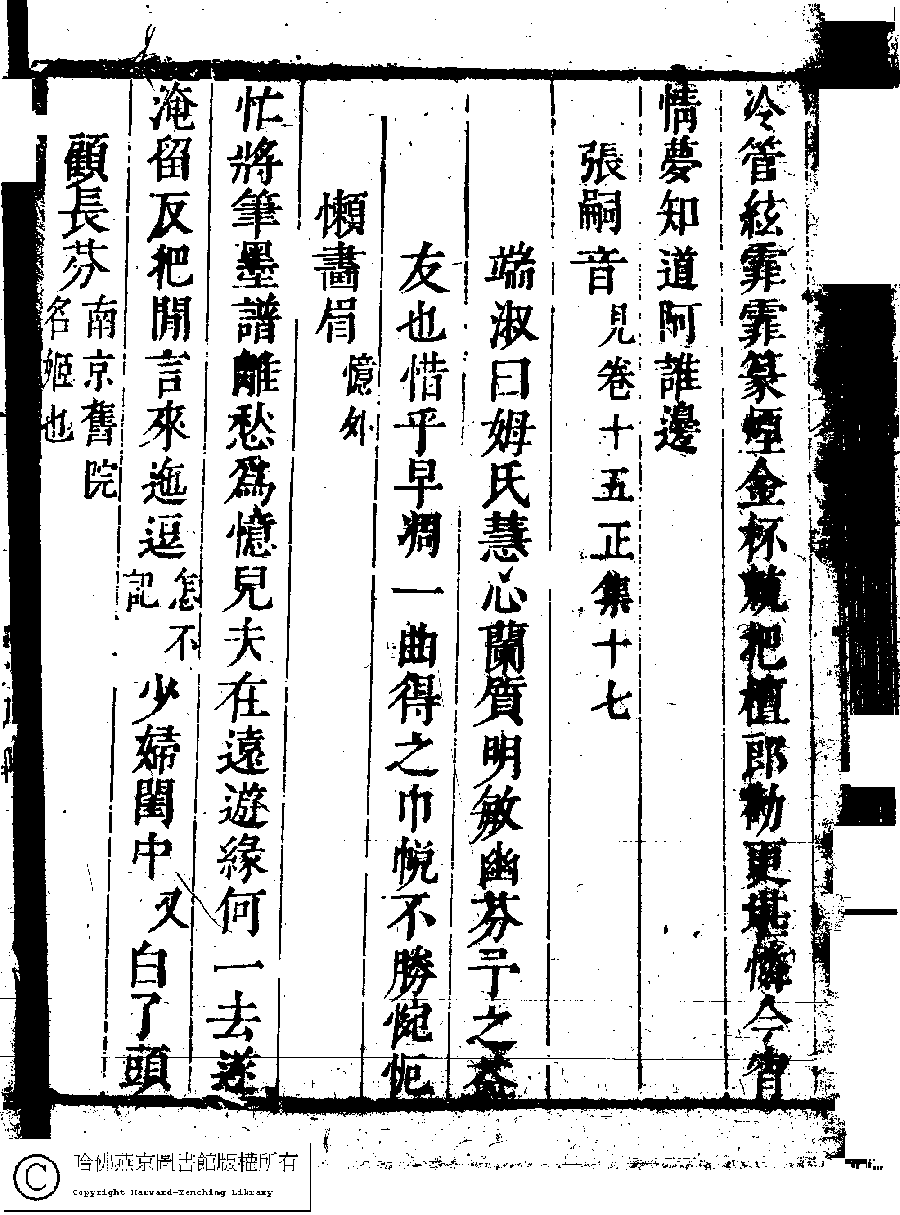 冷管絃霏霏篆煙金杯競把檀郎勸更堪憐今宵
情夢知道阿誰邊
張嗣音見卷十五正集十七
端淑曰姆氏慧心蘭質明敏幽芬予之
友也惜乎早凋一曲得之巾帨不勝惋怛
懶畵眉憶外
忙將筆墨譜離愁爲憶兒夫在遠遊緣何一去遂
淹留反把閒言來迤逗怎不記少婦閨中又白了頭
顧長芬南京舊院名姬也
哈佛燕京圖書館版權所有
Copyright Harvard-Yenching Library